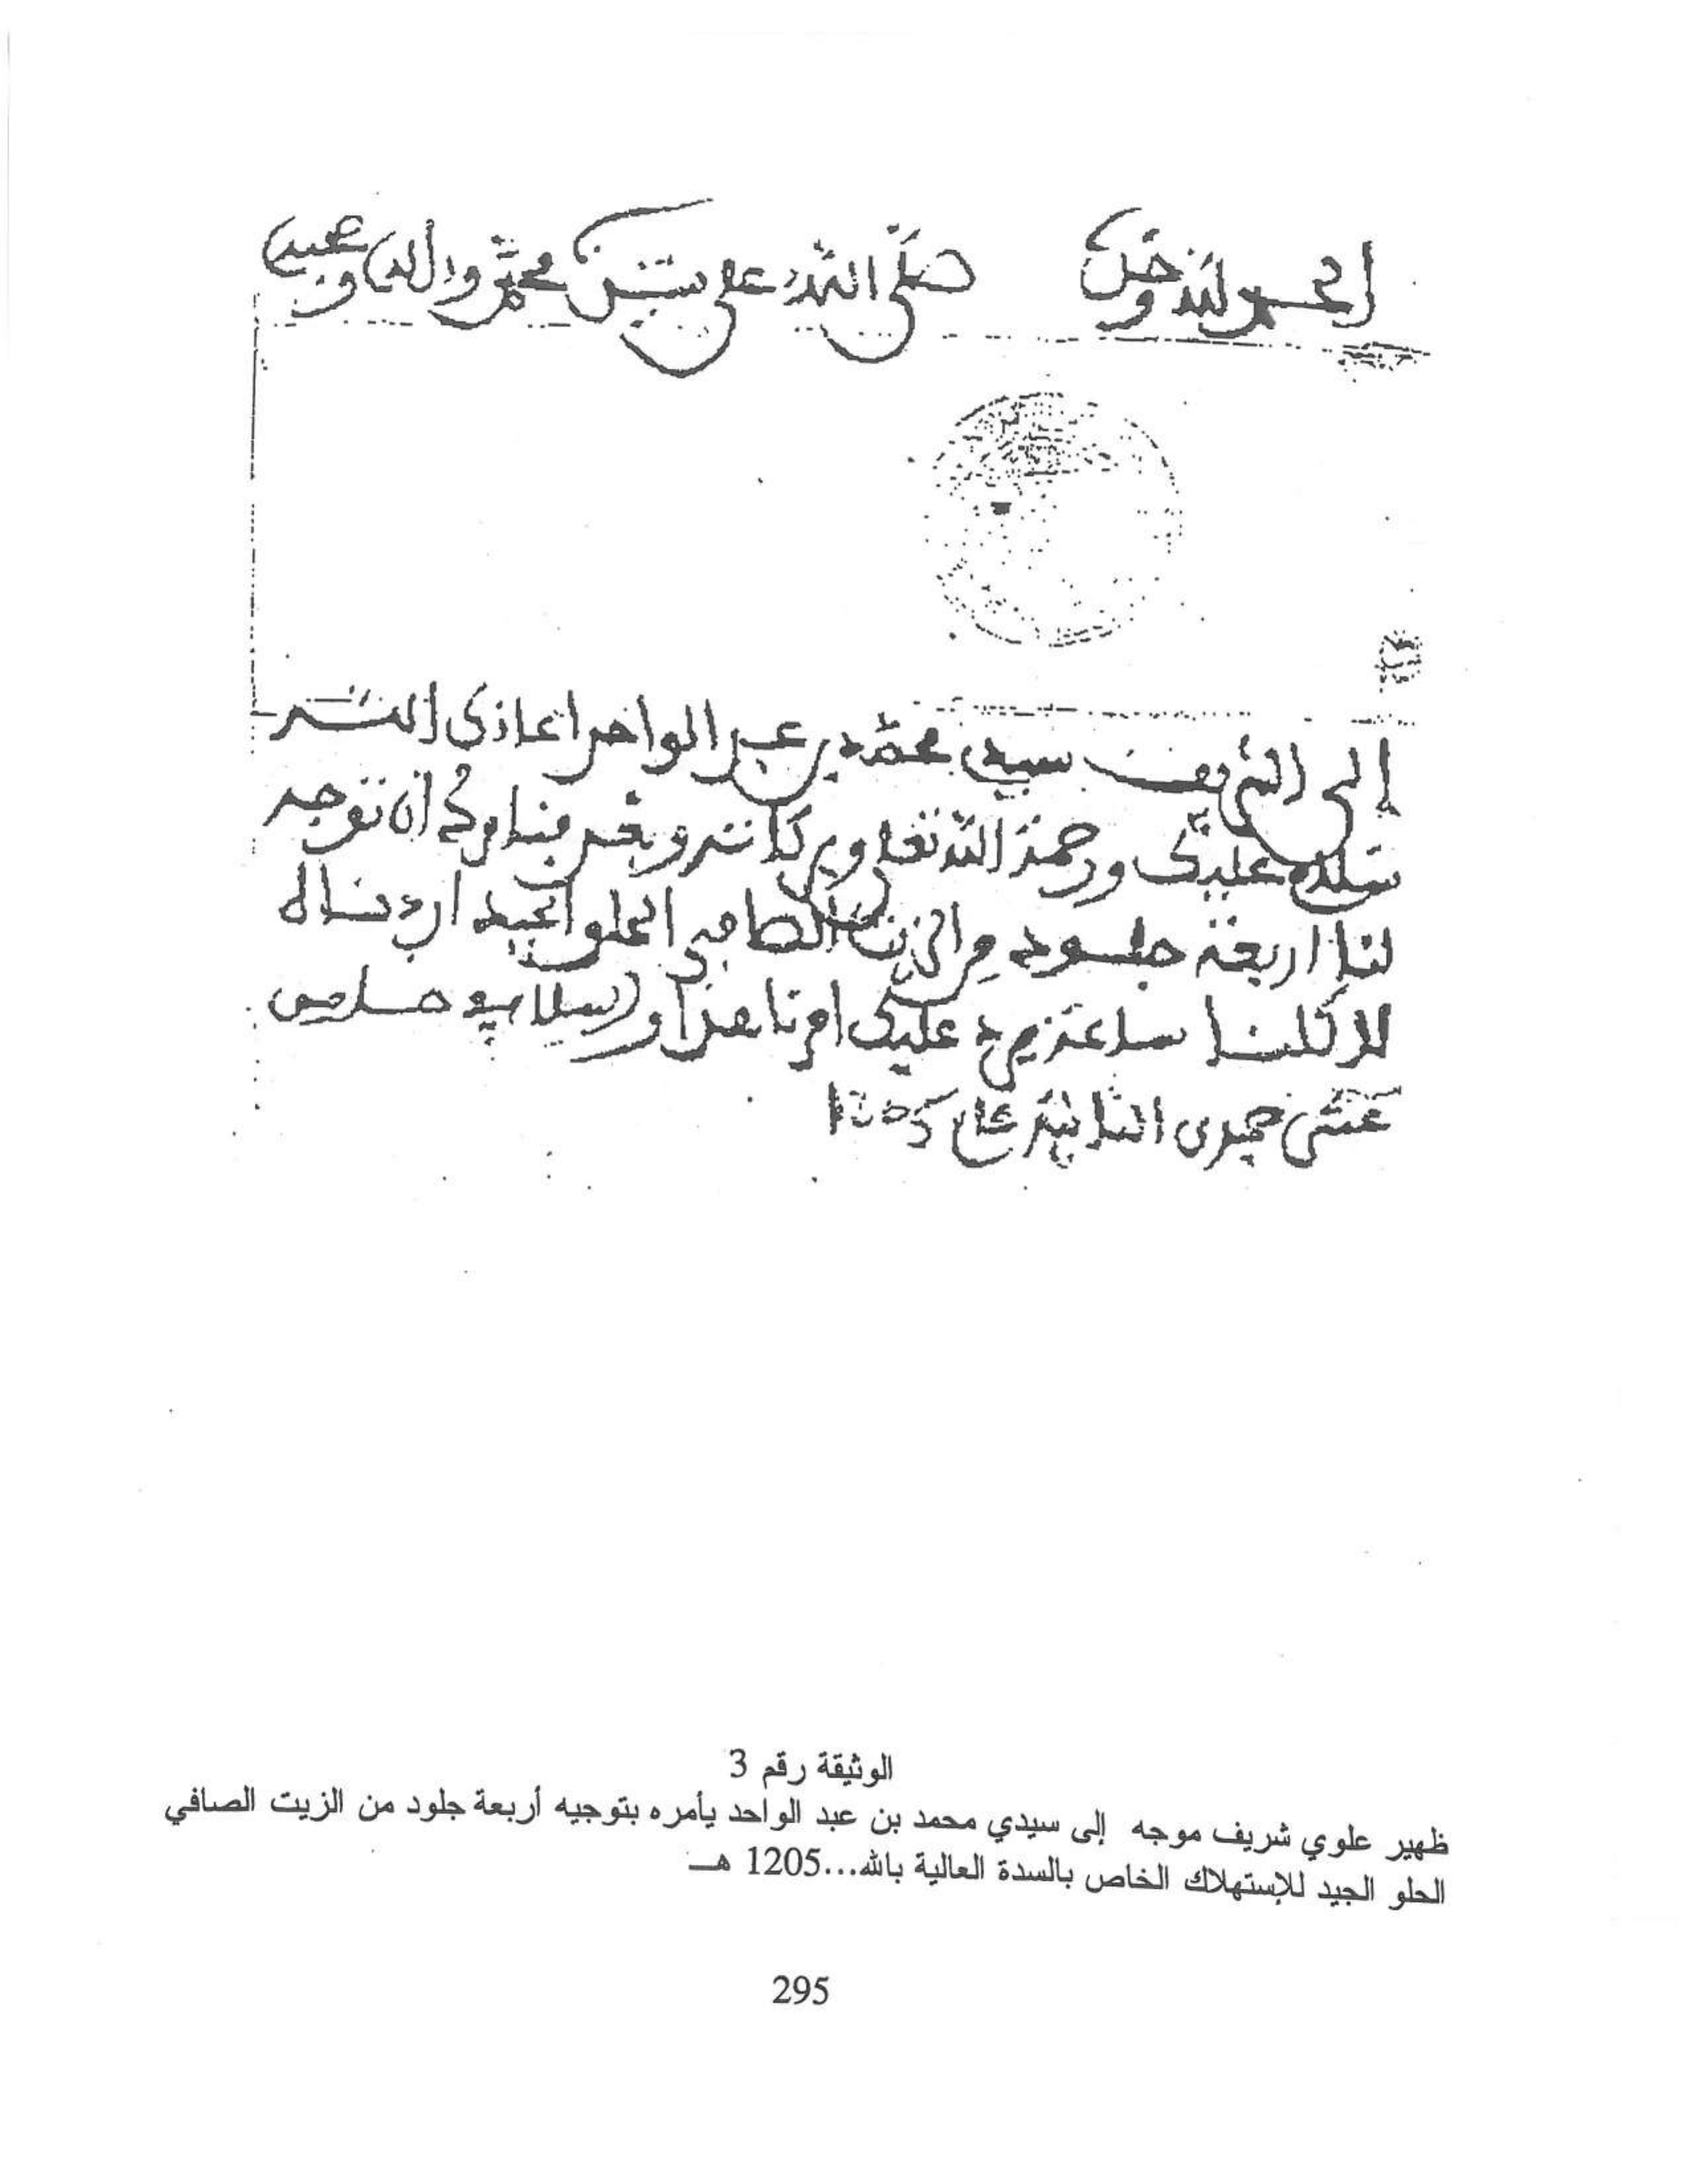 الحمد لله وحده صلى الله على سيدنا محمد وآله وصحبه
إلى الشريف سيدي محمد بن عبد الواحد اعانك الله
سلام عليك ورحمة الله تعلى وبركاته وبعد فنامرك أن توجه
لنا اربعة جلود من الزيت الصافي الحلو الجيد
لاكلنا ساعة عليك امرنا هذا والسلام في خامس
عشر جمدى الثانية عام 1205
الوثيقة رقم 3
ظهير علوي شريف موجه إلى سيدي محمد بن عبد الواحد يأمره بتوجيه أربعة جلود من الزيت الصافي
الحلو الجيد للإستهلاك الخاص بالسدة العالية بالله...1205 هـ
295